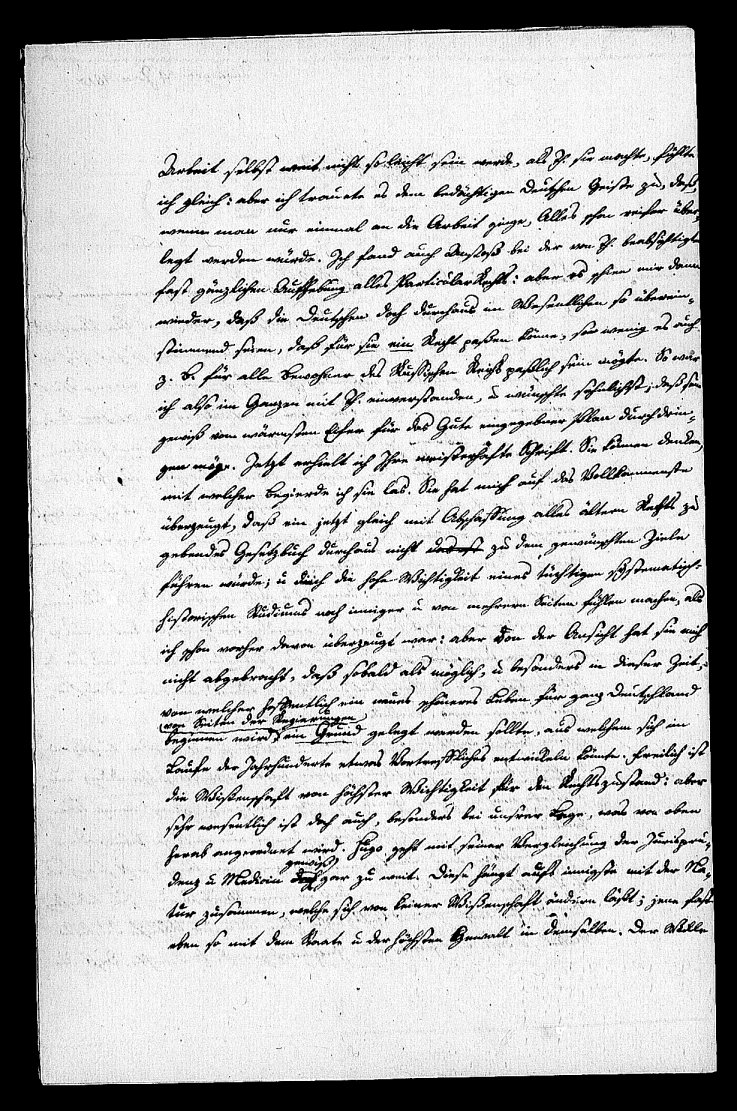 Arbeit selbst weit nicht so leicht sein werde, als Th. sie machte, fühlte
ich gleich: aber ich trauete es dem bedächtigen Deutschen Geiste zu, daß,
wenn man nur einmal an die Arbeit ginge, Alles schon reifer über-
legt werden würde. Ich fand auch Anstoß bei der von Th. beabsichtigten
fast gänzlichen Aufhebung alles ParticularRechts: aber es schien mir dann
wieder, daß die Deutschen doch durchaus im Wesentlichen so überein-
stimmend seien, daß für sie ein Recht paßen könne, so wenig es auch
z. B. für alle Bewohner des Russischen Reichs paßlich sein mögte. So war
ich also im Ganzen mit Th. einverstanden, u wünschte sehnlichst, daß sein
gewiß vom wärmsten Eifer für das Gute eingegebener Plan durchdrin-
gen möge. Jetzt erhielt ich Ihre meisterhafte Schrift. Sie können denken,
mit welcher Begierde ich sie las. Sie hat mich auf das Vollkommenste
überzeugt, daß ein jetzt gleich mit Abschaffung alles ältern Rechts zu
gebendes Gesetzbuch durchaus nicht zu dem gewünschten Ziele
führen würde; u mich die hohe Wichtigkeit eines tüchtigen systematisch-
historischen Studiums noch inniger u von mehrern Seiten fühlen machen, als
ich schon vorher davon überzeugt war: aber von der Ansicht hat sie mich
nicht abgebracht, daß sobald als möglich, u besonders in dieser Zeit,
von welcher hoffentlich ein neues schöneres Leben für ganz Deutschland
von Seiten der Regierungen
beginnen wird, ein Grund gelegt werden sollte, aus welchem sich im
Laufe der Jahrhunderte etwas Vortreffliches entwickeln könnte. Freilich ist
die Wissenschaft von höchster Wichtigkeit für den Rechtszustand: aber
sehr wesentlich ist doch auch, besonders bei unsrer Lage, was von oben
herab angeordnet wird. Hugo geht mit seiner Vergleichung der Jurispru-
gewiß
denz u Medicin gar zu weit. Diese hängt aufs innigste mit der Na-
tur zusammen, welche sich von keiner Wissenschaft ändern läßt; jene fast
eben so mit dem Staate u der höchsten Gewalt in demselben. Der Wille